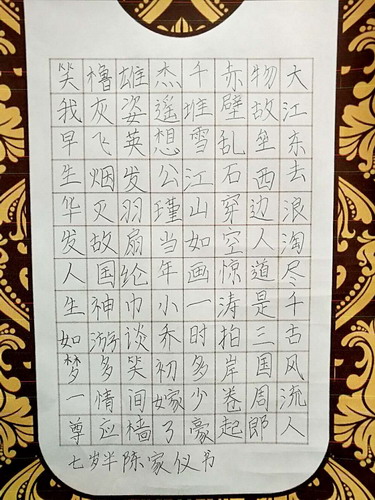 大江东去浪淘尽千古风流人
物故垒西边人道是三国周郎
赤壁乱石穿空惊涛拍岸卷起
千堆雪江山如画一时多少豪
杰遥想公瑾当年小乔初嫁了
雄姿英发羽扇纶巾谈笑间樯
橹灰飞烟灭故国神游多情应
笑我早生华发人生如梦一尊
七岁半陈家仪书